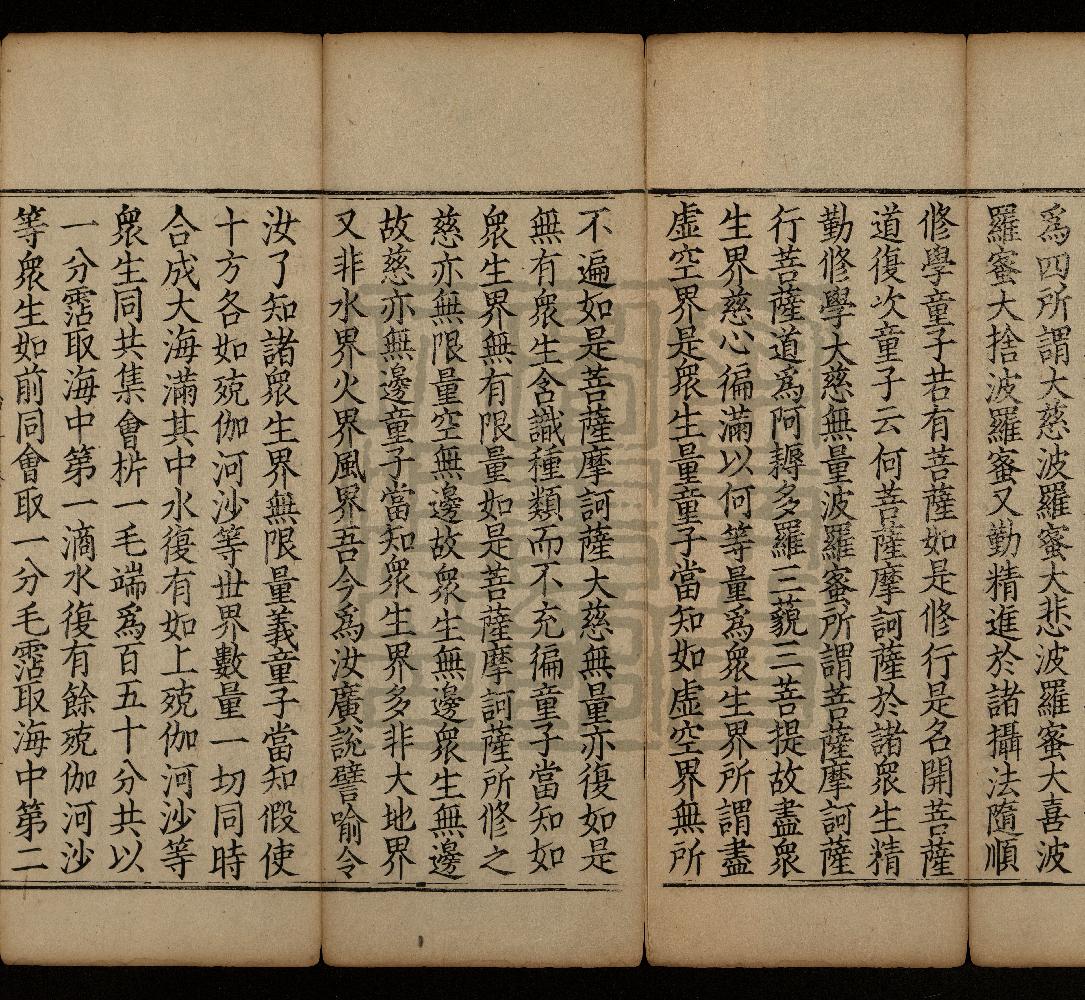 爲四所謂大慈波羅蜜大悲波羅蜜大喜波
羅蜜大捨波羅蜜又勤精進於諸攝法隨順
修學童子若有菩薩如是修行是名開菩薩
道復次童子云何菩薩摩訶薩於諸衆生精
勤修學大慈無量波羅蜜所謂菩薩摩訶薩
行菩薩道爲阿耨多羅三藐三菩提故盡衆
生界慈心徧滿以何等量爲衆生界所謂盡
虛空界是衆生量童子當知如虛空界無所
不遍如是菩薩摩訶薩大慈無量亦復如是
無有衆生含識種類而不充徧童子當知如
衆生界無有限量如是菩薩摩訶薩所修之
慈亦無限量空無邊故衆生無邊衆生無邊
故慈亦無邊童子當知衆生界多非大地界
又非水界火界風界吾今爲汝廣説譬喻令
汝了知諸衆生界無限量義童子當知假使
十方各如殑伽河沙等世界數量一切同時
合成大海滿其中水復有如上殑伽河沙等
衆生同共集會析一毛端爲百五十分共以
一分霑取海中第一滴水復有餘殑伽河沙
等衆生如前同會取一分毛霑取海中第二